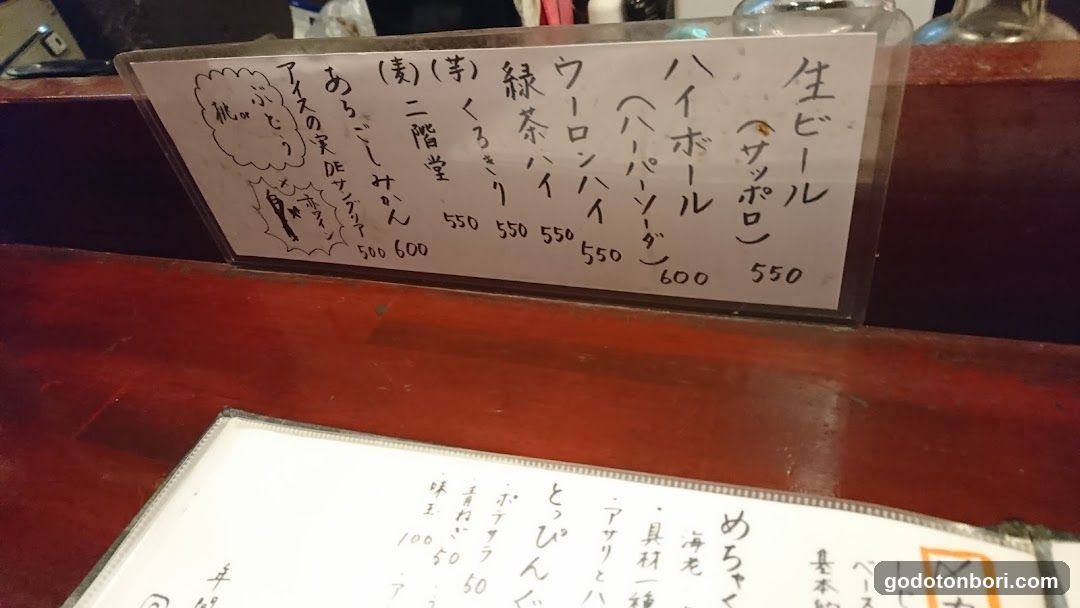 生ビール
(サッポロ) 550
ハイボール
(ハーパーソーダ) 600
ウーロンハイ 550
緑茶ハイ 550
(芋)くろきり 550
(麦)二階堂 550
あらごしみかん 600
アイスの実DEサングリア 500
ぶどう
桃or
赤ワイン
ベース
基本的
めちゃ
海老
・具材一種
・アサリとハ
とっぴんぐ
・ポテサラ 50
・青ねぎ 50
・味玉 100
godotonbori.com